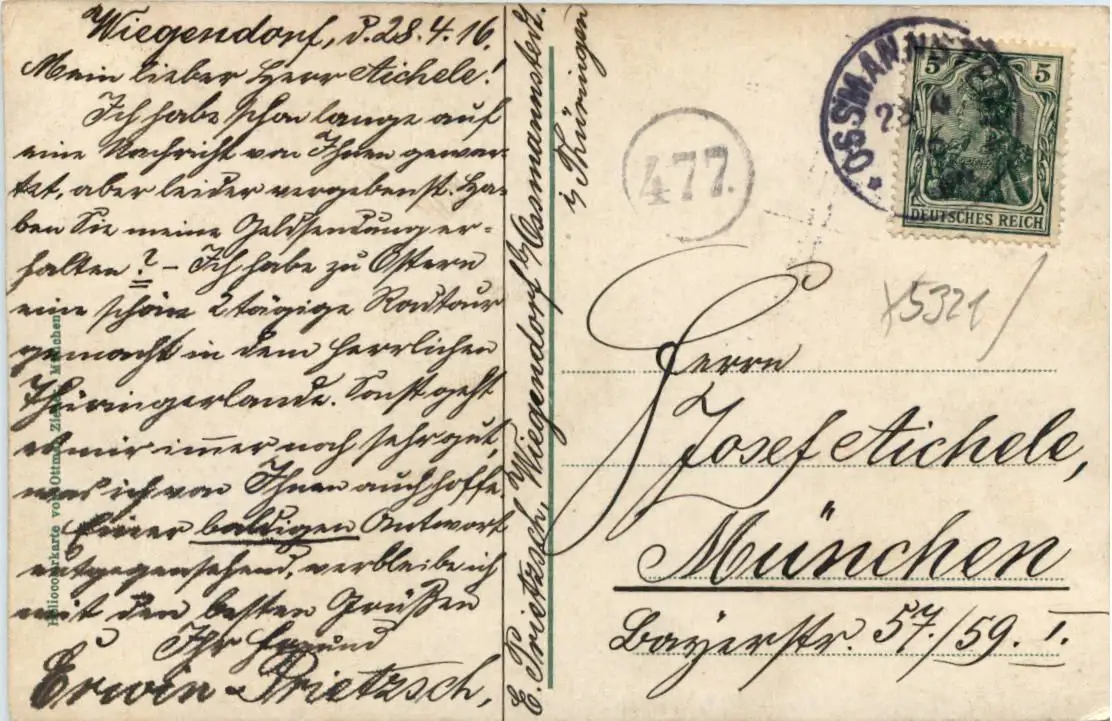 Wiegendorf, d. 28.4.16.
Mein lieber Herr Aichele!
Ich habe schon lange auf
eine Nachricht von Ihnen gewar-
tet, aber leider vergebenst. Ha-
ben Sie meine Geldsendung er-
halten? – Ich habe zu Ostern
eine schöne 2tägige Radtour
gemacht in dem herrlichen
Thüringerlande. Sonst geht
es mir immer noch sehr gut,
was ich von Ihnen auch hoffe.
Einer baldigen Antwort
entgegensehend, verbleibe ich
mit den besten Grüßen
Ihr Freund
Erwin Prietzsch,
E. Prietzsch, Wiegendorf b/Ossmannstedt.
i/Thüringen
Heliocolorkarte von Ottmar Zieher, München
477.
OSSMANNSTEDT
28 4 16
5 5
DEUTSCHES REICH
x5321/
Herrn
Josef Aichele,
München
Bayerstr. 57./59. I.